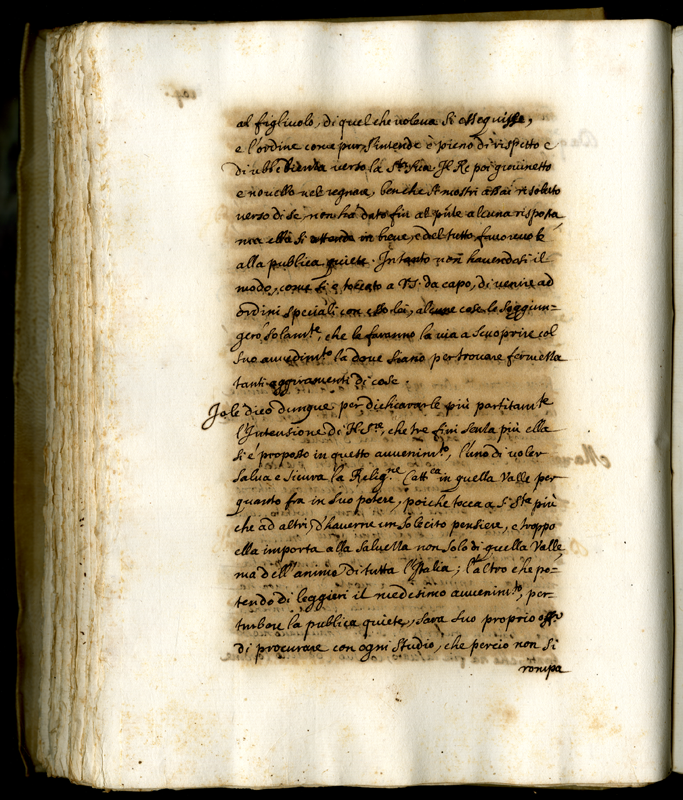 al figliuolo, di quel che voleva si essequisse,
e l'ordine come pur s'intende è pieno di rispetto e
di ubbebienza verso la S.tà Sua. Il Re poi giovinetto
e novello nel regnar, benche si mostri assai risoluto
verso di se, non hà dato fin al pnte alcuna risposta
ma ella si attende in breve, e del tutto favorevole
alla publica quiete. Intanto non havendosi il
modo, come si è toccato a V.S. da capo, di venire ad
ordini speciali con esso lei, alcune cose le soggiun=
gerò solam.te, che le faranno la via a scuoprire col
suo avvedim.to là dove stano per trovare fermezza
tanti aggiramenti di cose.
Io le dico dunque per dichiararle più partitam.te
l'Intenzione di N. S.re, che tre fini senza più ella
si è proposto in questo avvenim.to, l'uno di voler
salva e sicura la Relig.ne Catt.ca in quella Valle per
quanto fra in suo potere, poiche tocca a S. S.tà più
che ad altri, d'haverne un solecito pensiere, e troppo
ella importa alla salvezza non solo di quella Valle
ma dell'animo di tutta l'Italia; l'altro che po=
tendo di leggieri il medesimo avvenim.to, per=
turbare la publica quiete, sarà suo proprio off.o
di procurare con ogni studio, che perciò non si
rompa